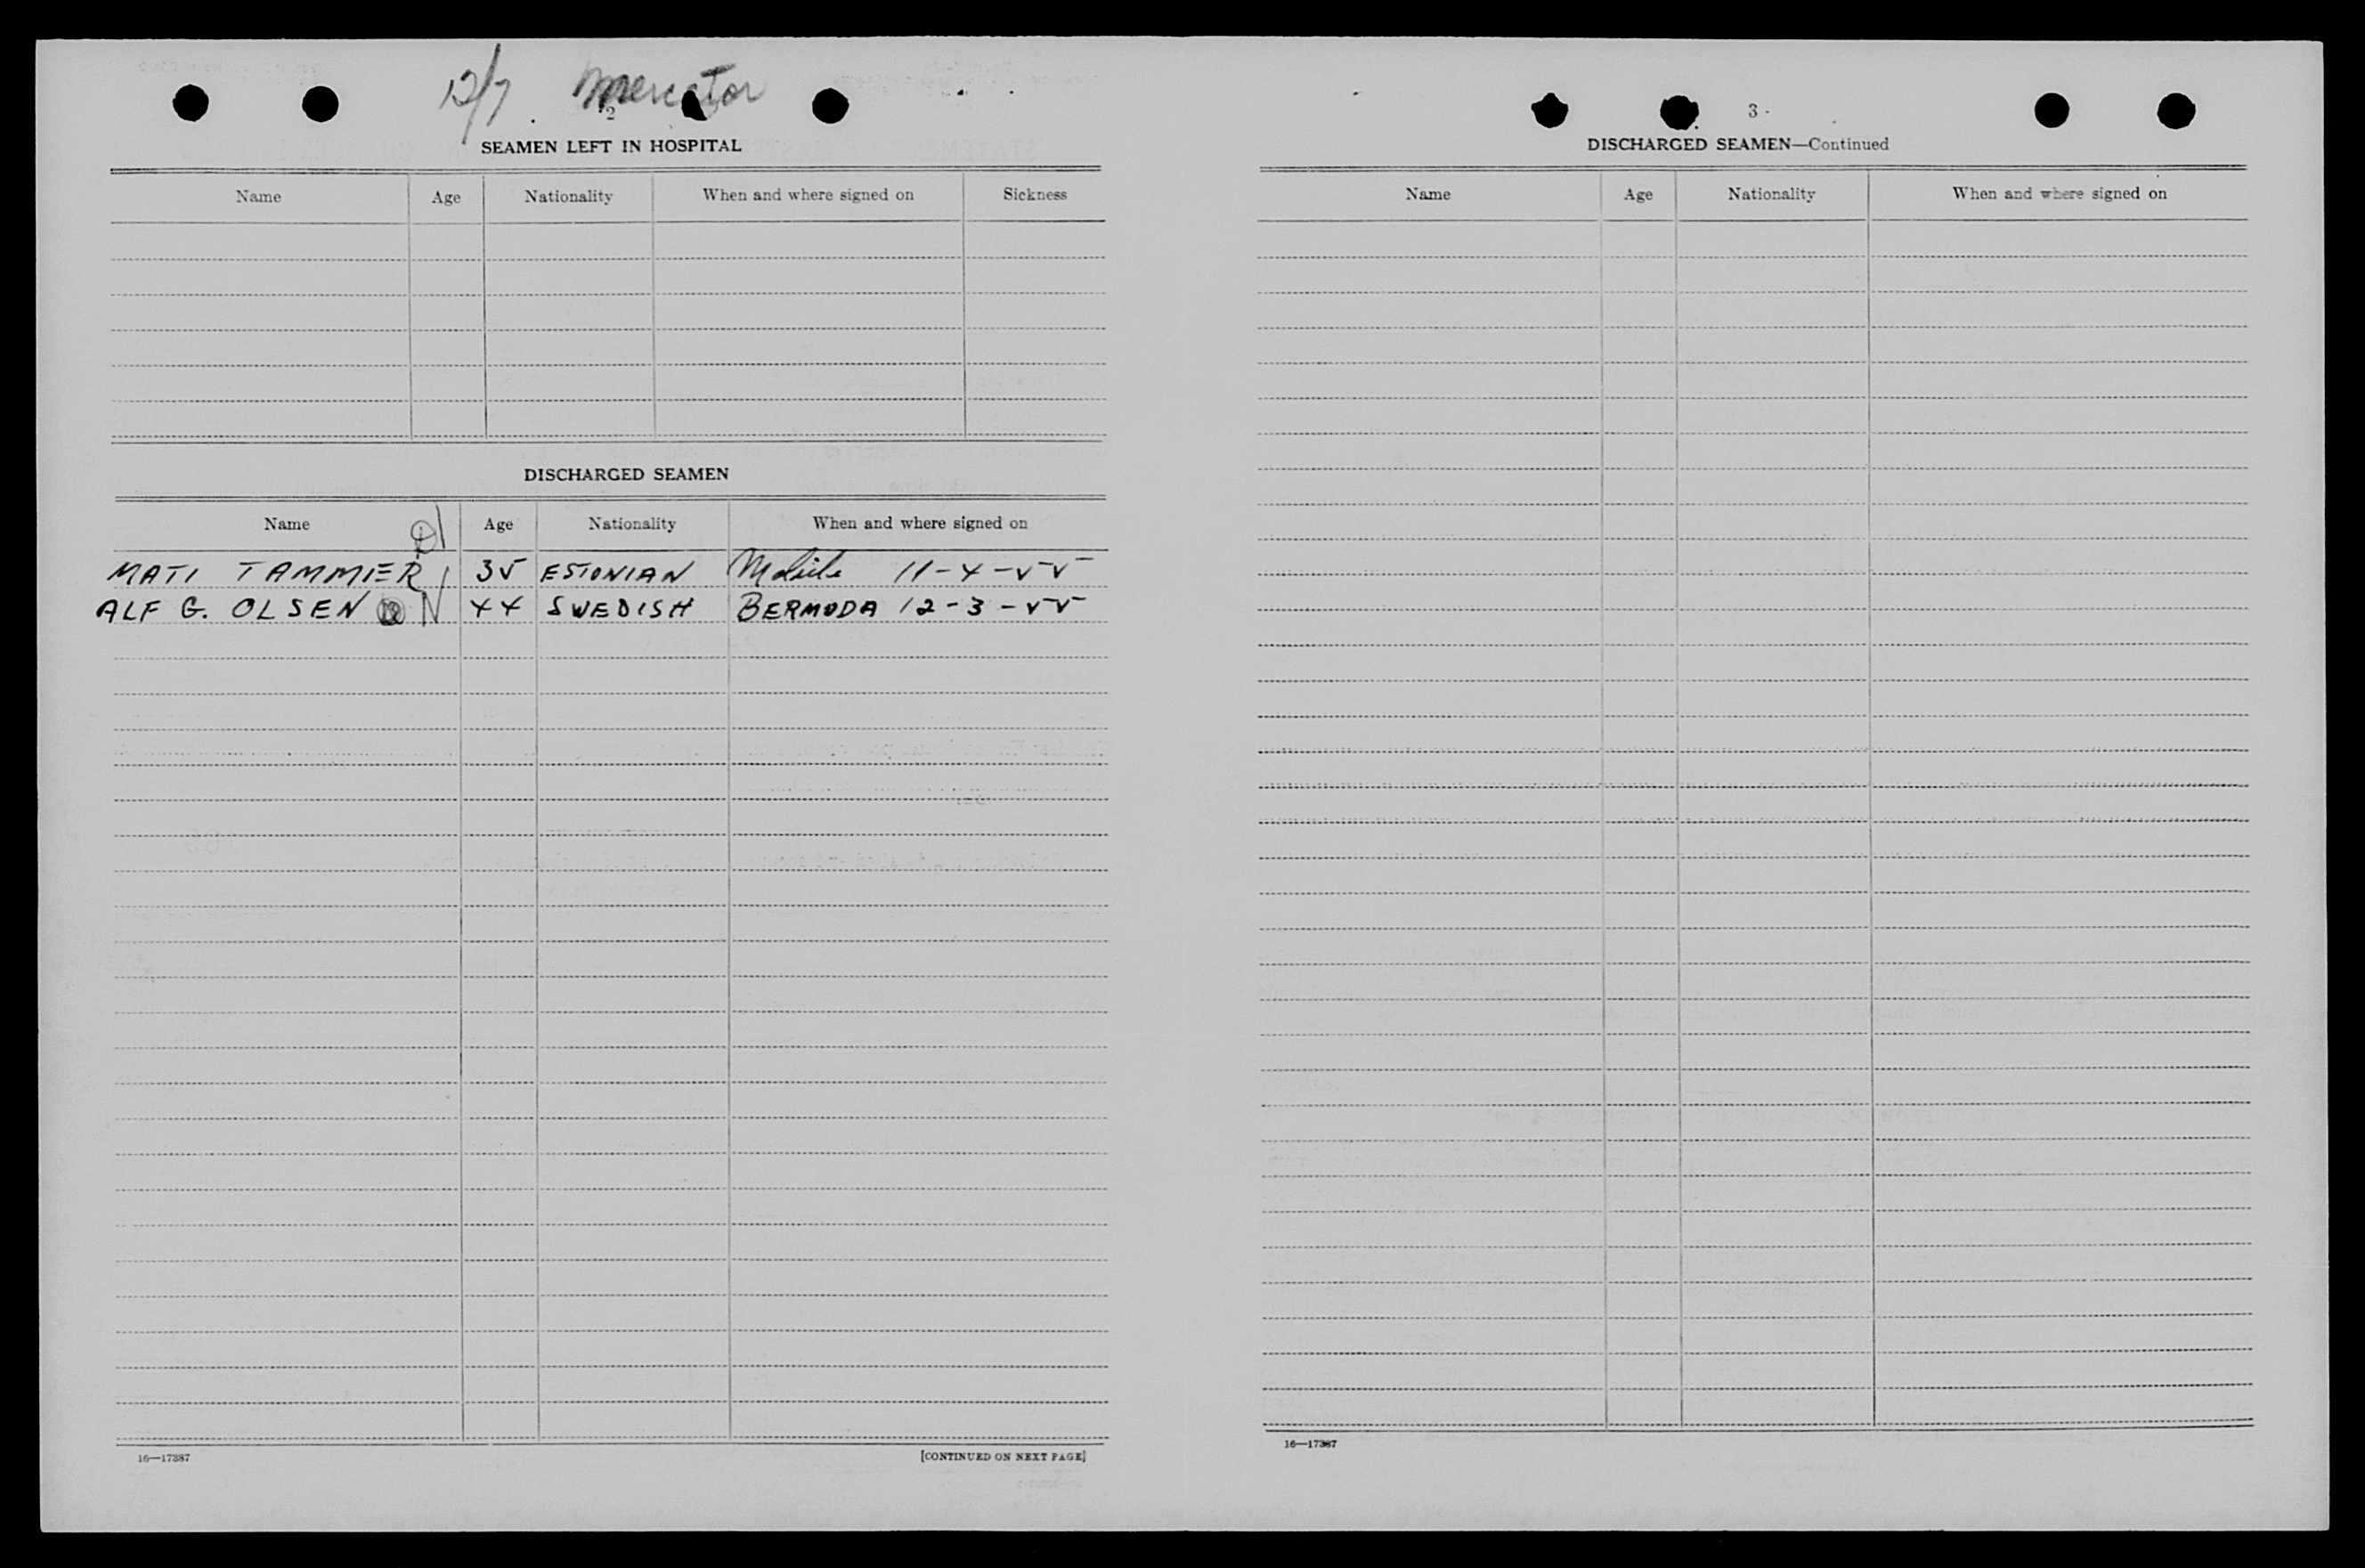 12/7 Mercator
2
SEAMEN LEFT IN HOSPITAL
Name Age Nationality When and where signed on Sickness
DISCHARGED SEAMEN
Name Age Nationality When and where signed on
MATI TAMMIER 35 ESTONIAN Mobile 11-4-55
ALF G. OLSEN N 44 SWEDISH BERMUDA 12-3-55
16—17387 [CONTINUED ON NEXT PAGE]
3
DISCHARGED SEAMEN—Continued
Name Age Nationality When and where signed on
16—17387